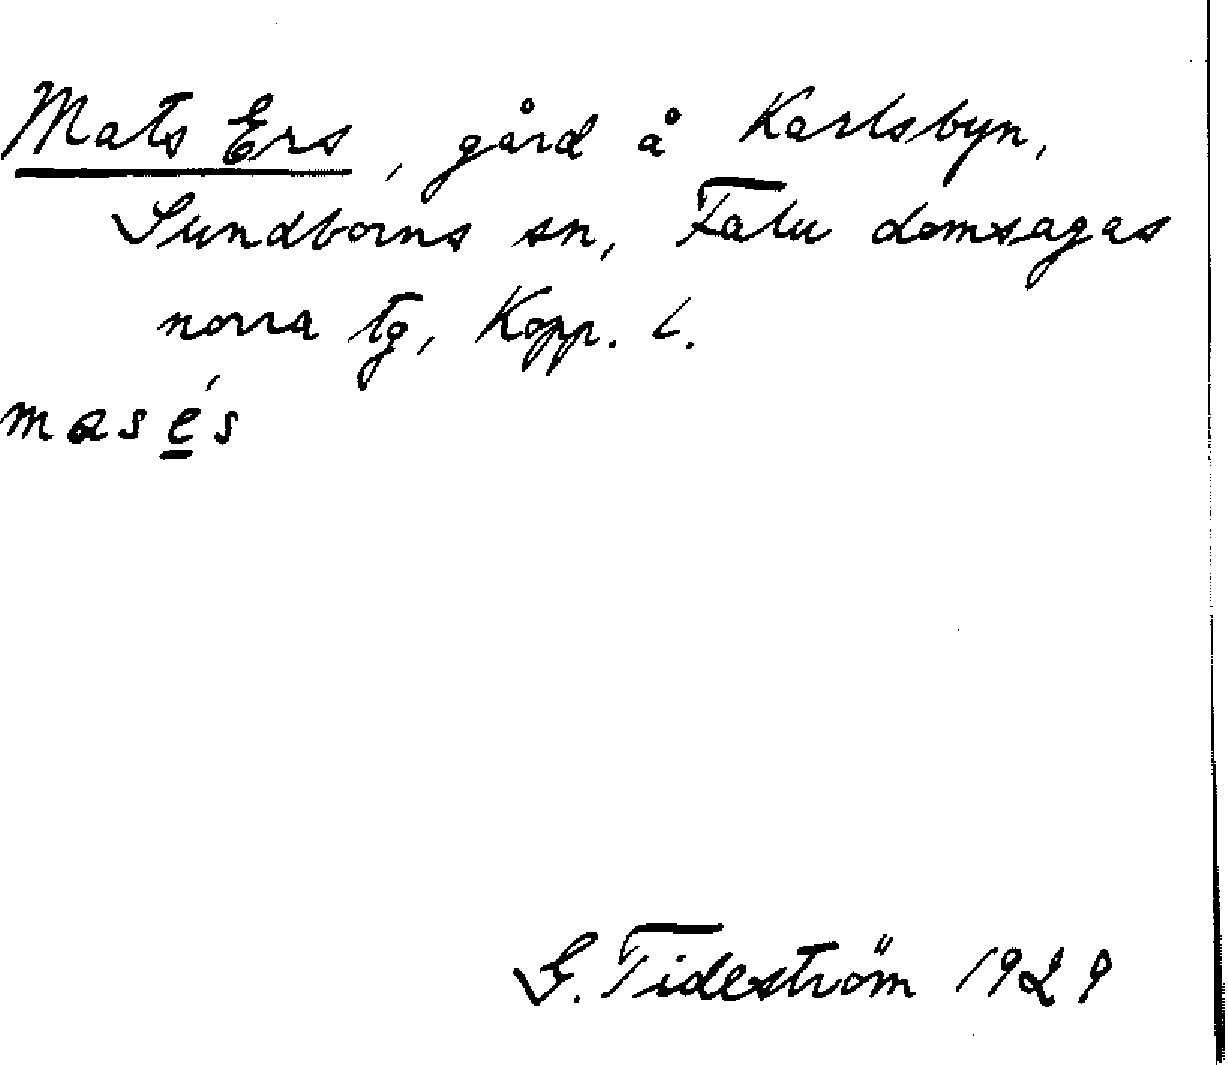 Mats Ers, gård å Karlsbyn,
Sundborns sn, Falu domsagas
norra tg, Kopp. l.
masés
G. Tideström 1929